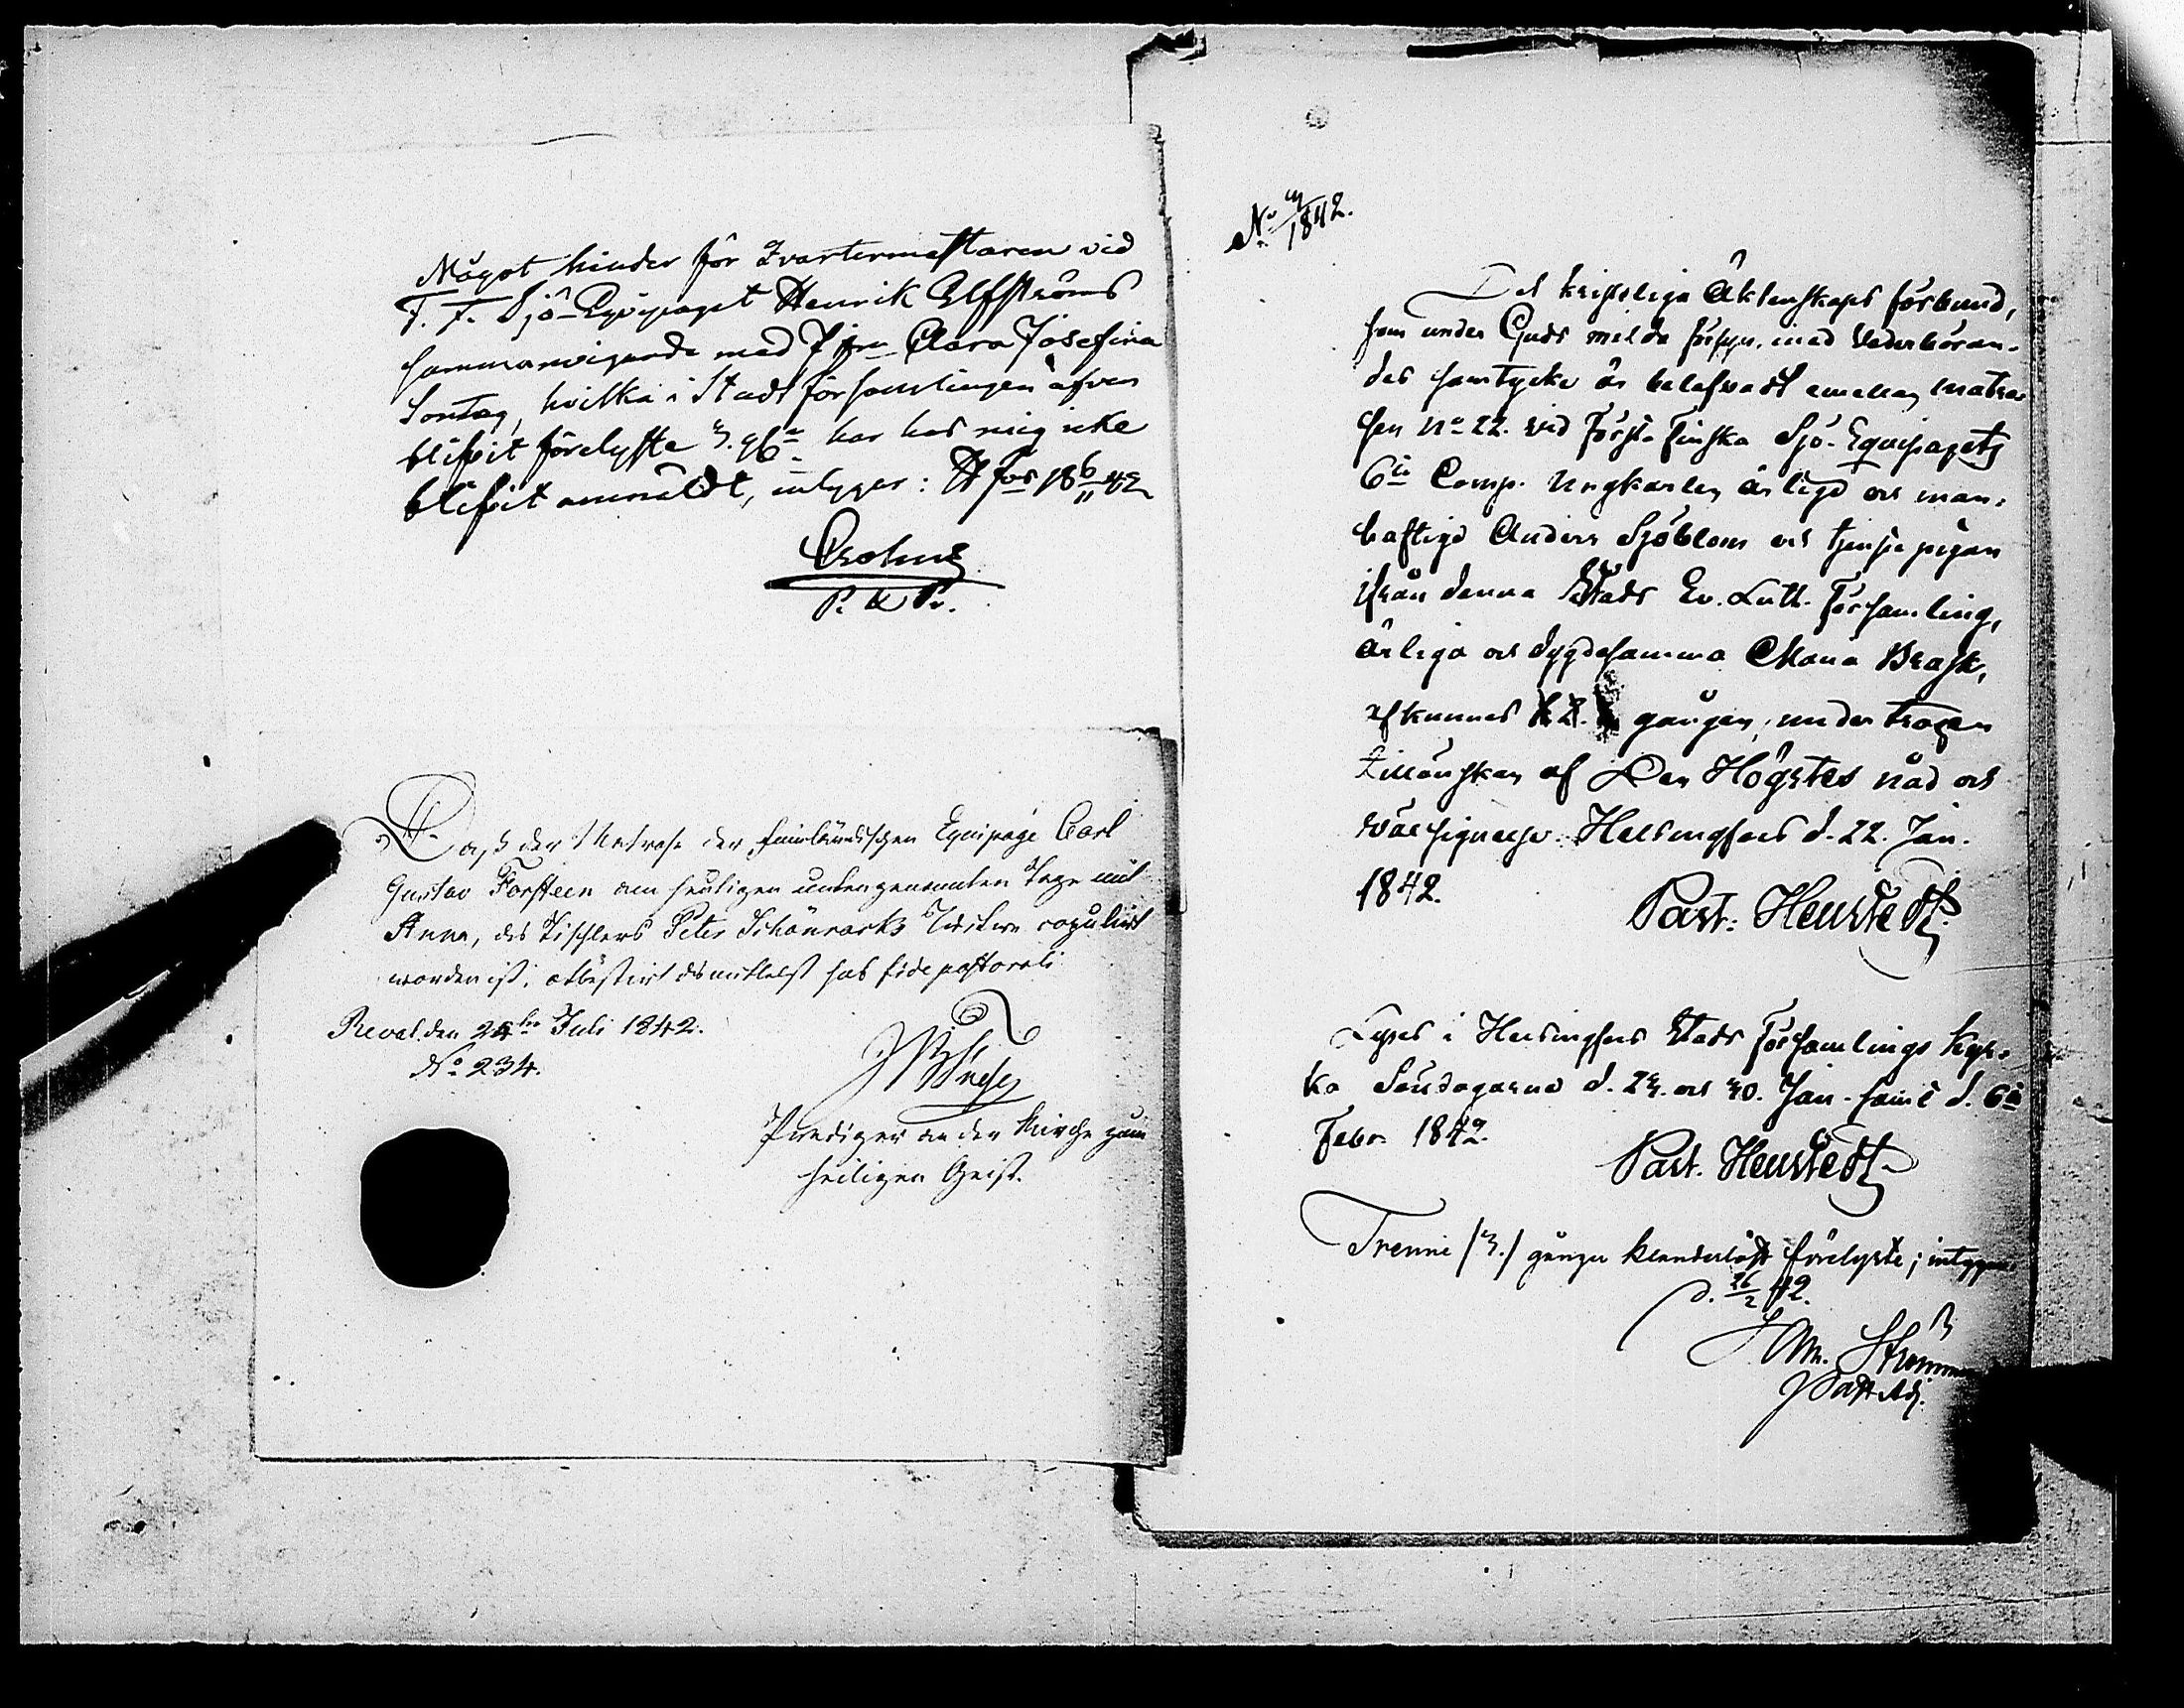 Något hinder för Qvartermästaren vid
F. F. Sjö-Eqvipaget Henrik Elfströms
sammanvigande med Jfrn Clara Josefina
Sontag, hvilka i Stadsförsamlingen äfven
blifvit förelyste 3. ggr har hos mig icke
blifvit anmäldt, intygar: H:fors 18 6/11 42
Crohns
P. K. Pr.
Daß der Matrose der finnländischen Equipage Carl
Gustav Forsteen am heutigen untengenannten Tage mit
Anna, des Tischlers Peter Schönrocks Tochter copulirt
worden ist, attestirt desmittelst sub fide pastorali
Reval den 24ten Juli 1842.
No 234.
Prediger an der Kirche zum
heiligen Geist.
No 4/1842.
Det kristeliga Äktenskaps förbund,
som under Guds milda försyn, med Vederböran-
des samtycke är belefvadt emellan matro-
sen No 22. vid Första Finska Sjö-Equipagets
6te Comp. Ungkarlen ärlige och man-
haftige Anders Sjöblom och tjenstepigan
ifrån denna Stads Ev. Luth. Församling,
ärliga och dygdesamma Maria Brask,
afkunnes 2. gången, under trogen
tillönskan af Den Högstes nåd och
Välsignelse. Helsingfors d. 22. Jan.
1842.
Past. Henstedt
Lystes i Helsingfors Stads Församlings Kyr-
ka Söndagarne d. 23. och 30. Jan. samt d. 6te
Febr. 1842.
Past. Henstedt
Trenne /3./ gånger klanderlöst förelyste; intygas
d. 26/2 42.
Past. Adj.